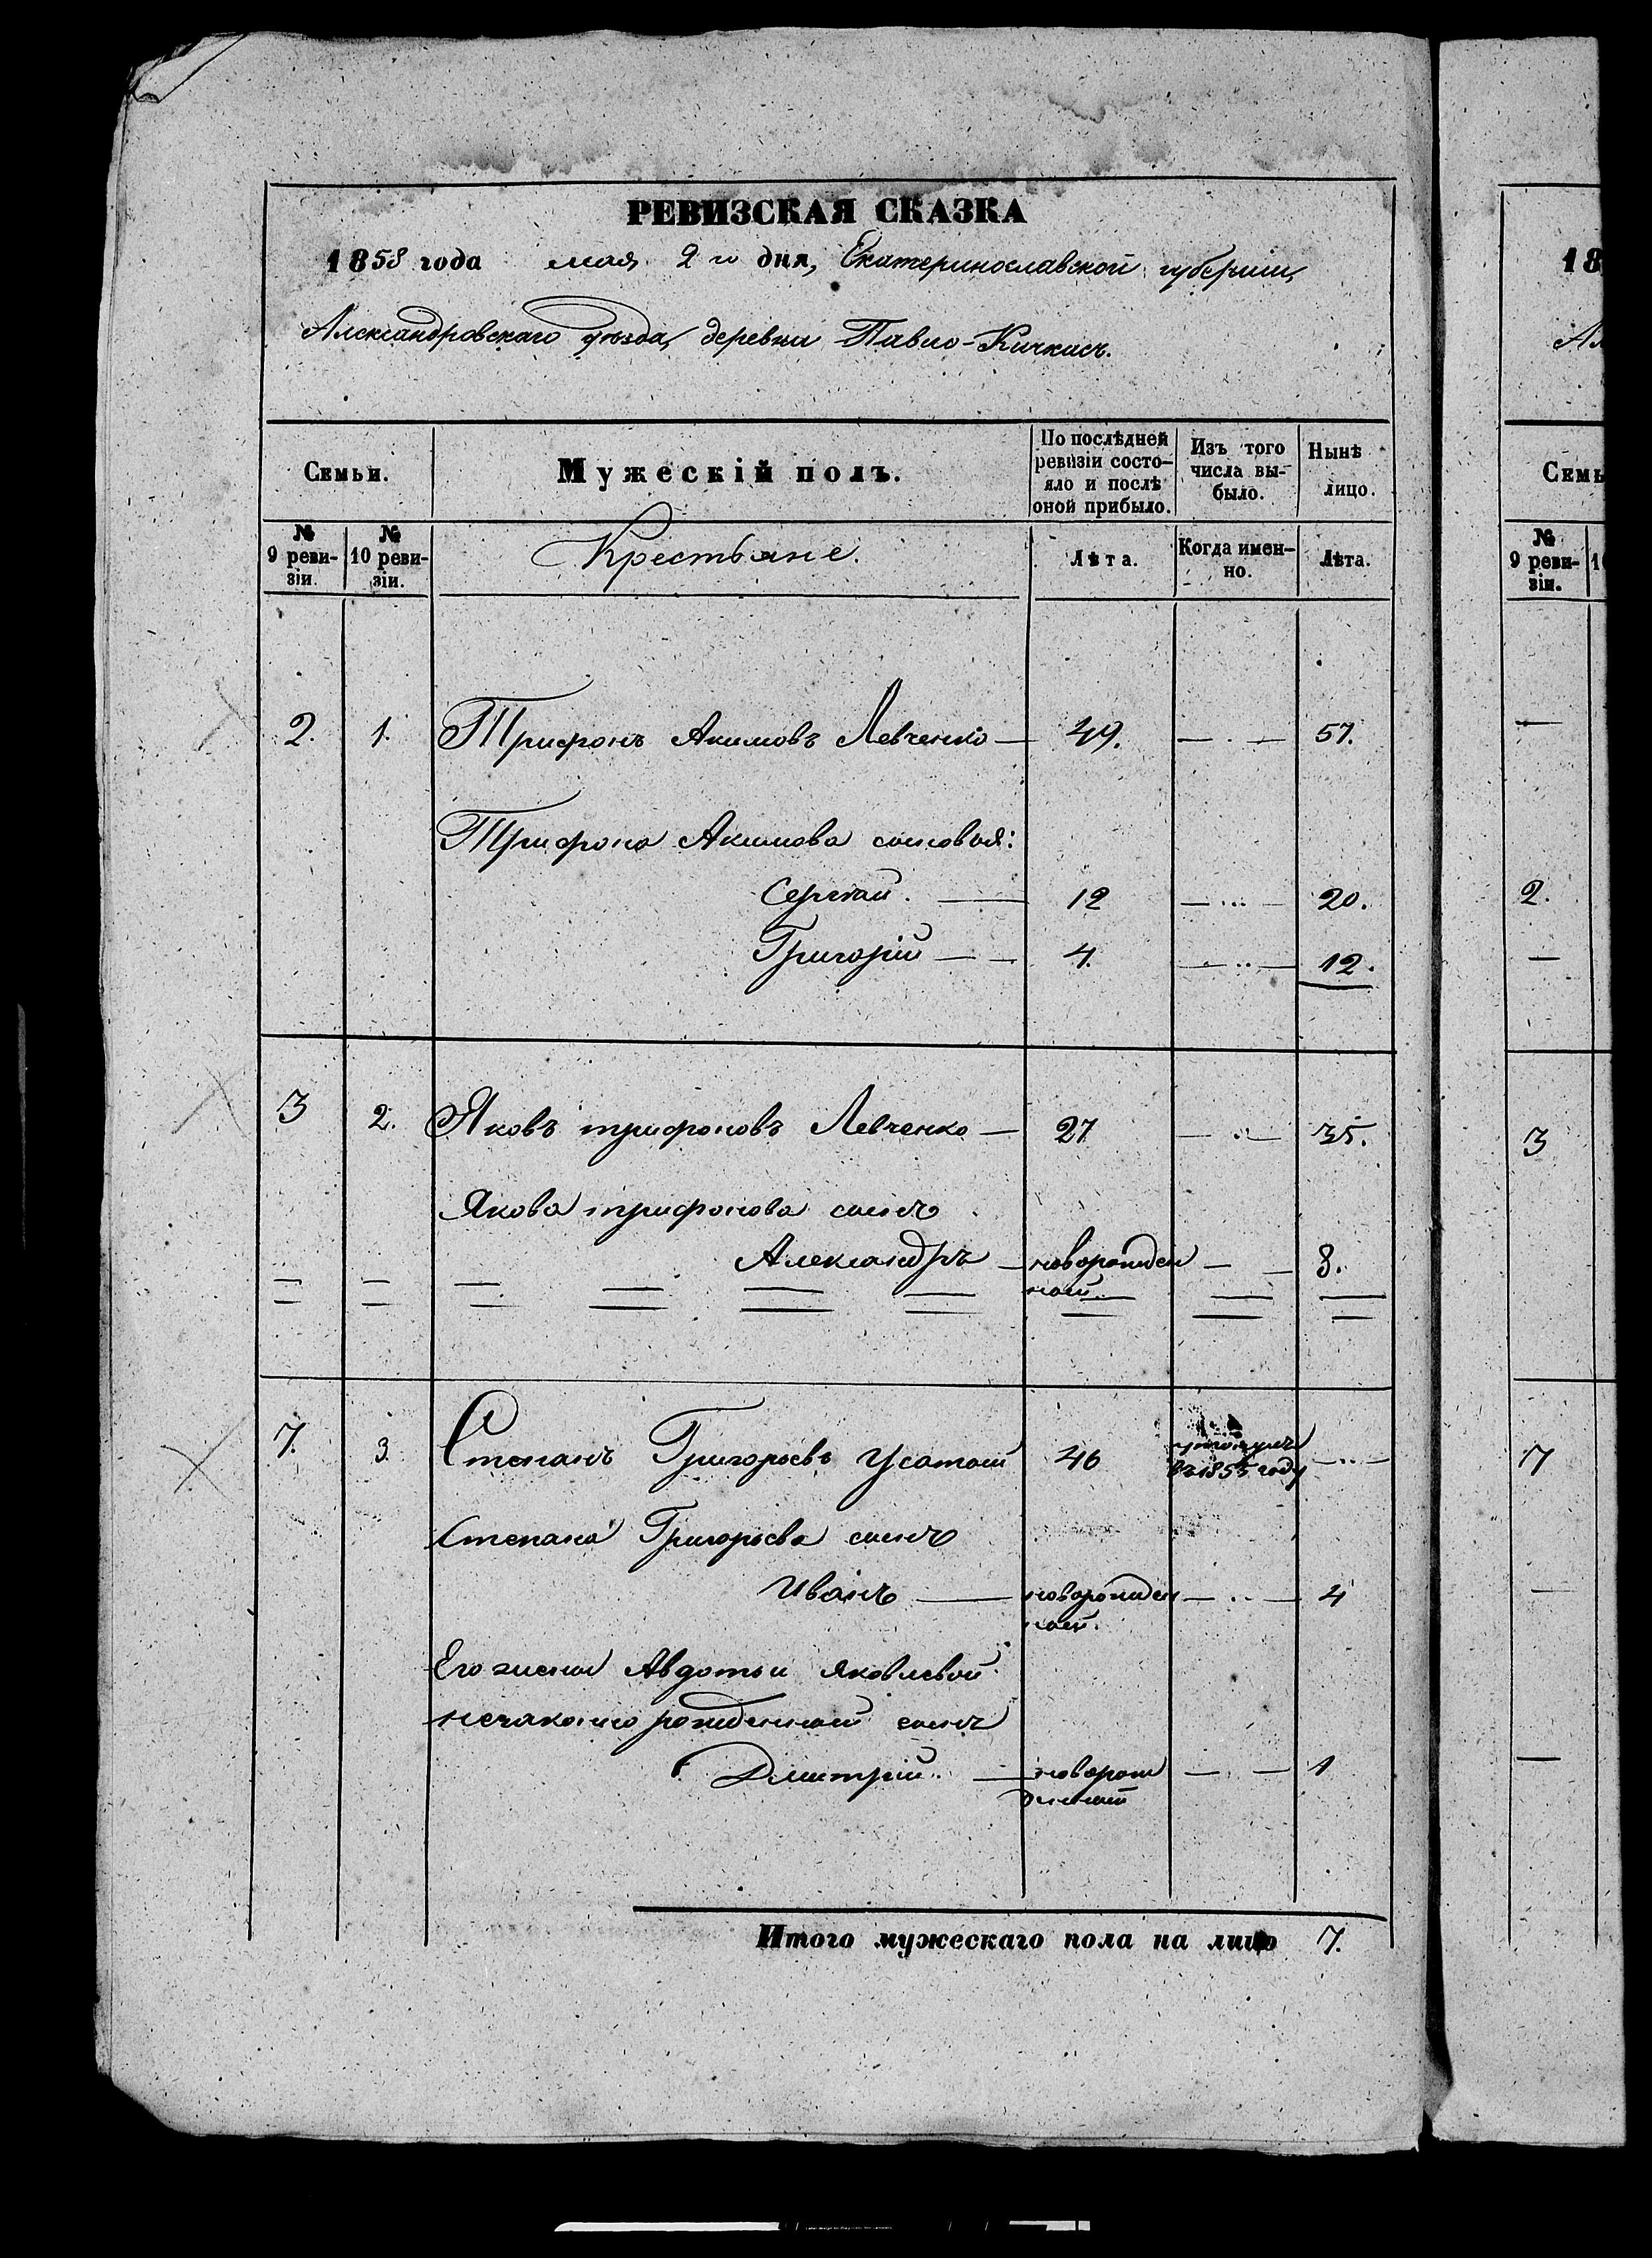 РЕВИЗСКАЯ СКАЗКА
1858 года мая 2 го дня, Екатеринославской губерніи,
Александровскаго уѣзда, деревни Павло-Кичкасъ.
Семьи.
Мужескій полъ.
По послѣдней
ревизіи состо-
яло и послѣ
оной прибыло.
Изъ того
числа вы-
было.
Нынѣ
лицо.
№
9 реви-
зіи.
№
10 реви-
зіи.
Крестьяне.
Лѣта.
Когда имен-
но.
Лѣта.
2. 1. Трифонъ Акимовъ Левченко — 49. — . — 57.
Трифона Акимова сыновья:
Сергѣй. — 12 — ... — 20.
Григорій — — 4. — .. — 12.
3 2. Яковъ трифоновъ Левченко — 27 — .. — 35.
Якова трифонова сынъ
Александръ — новорожден — — 8.
ной.
7. 3. Степанъ Григорьевъ Усатый 46 — .. —
въ 1855 году
Степана Григорьева сынъ
Иванъ — новорожден — .. — 4
ной.
Его жены Авдотьи Яковлевой
незаконно рожденный сынъ
Дмитрій. — новорож — . — 1
денный
Итого мужескаго пола на лицо 7.
18
Ал
Семь
№
9 реви-
зіи.
1
—
2.
—
3
7
—
—